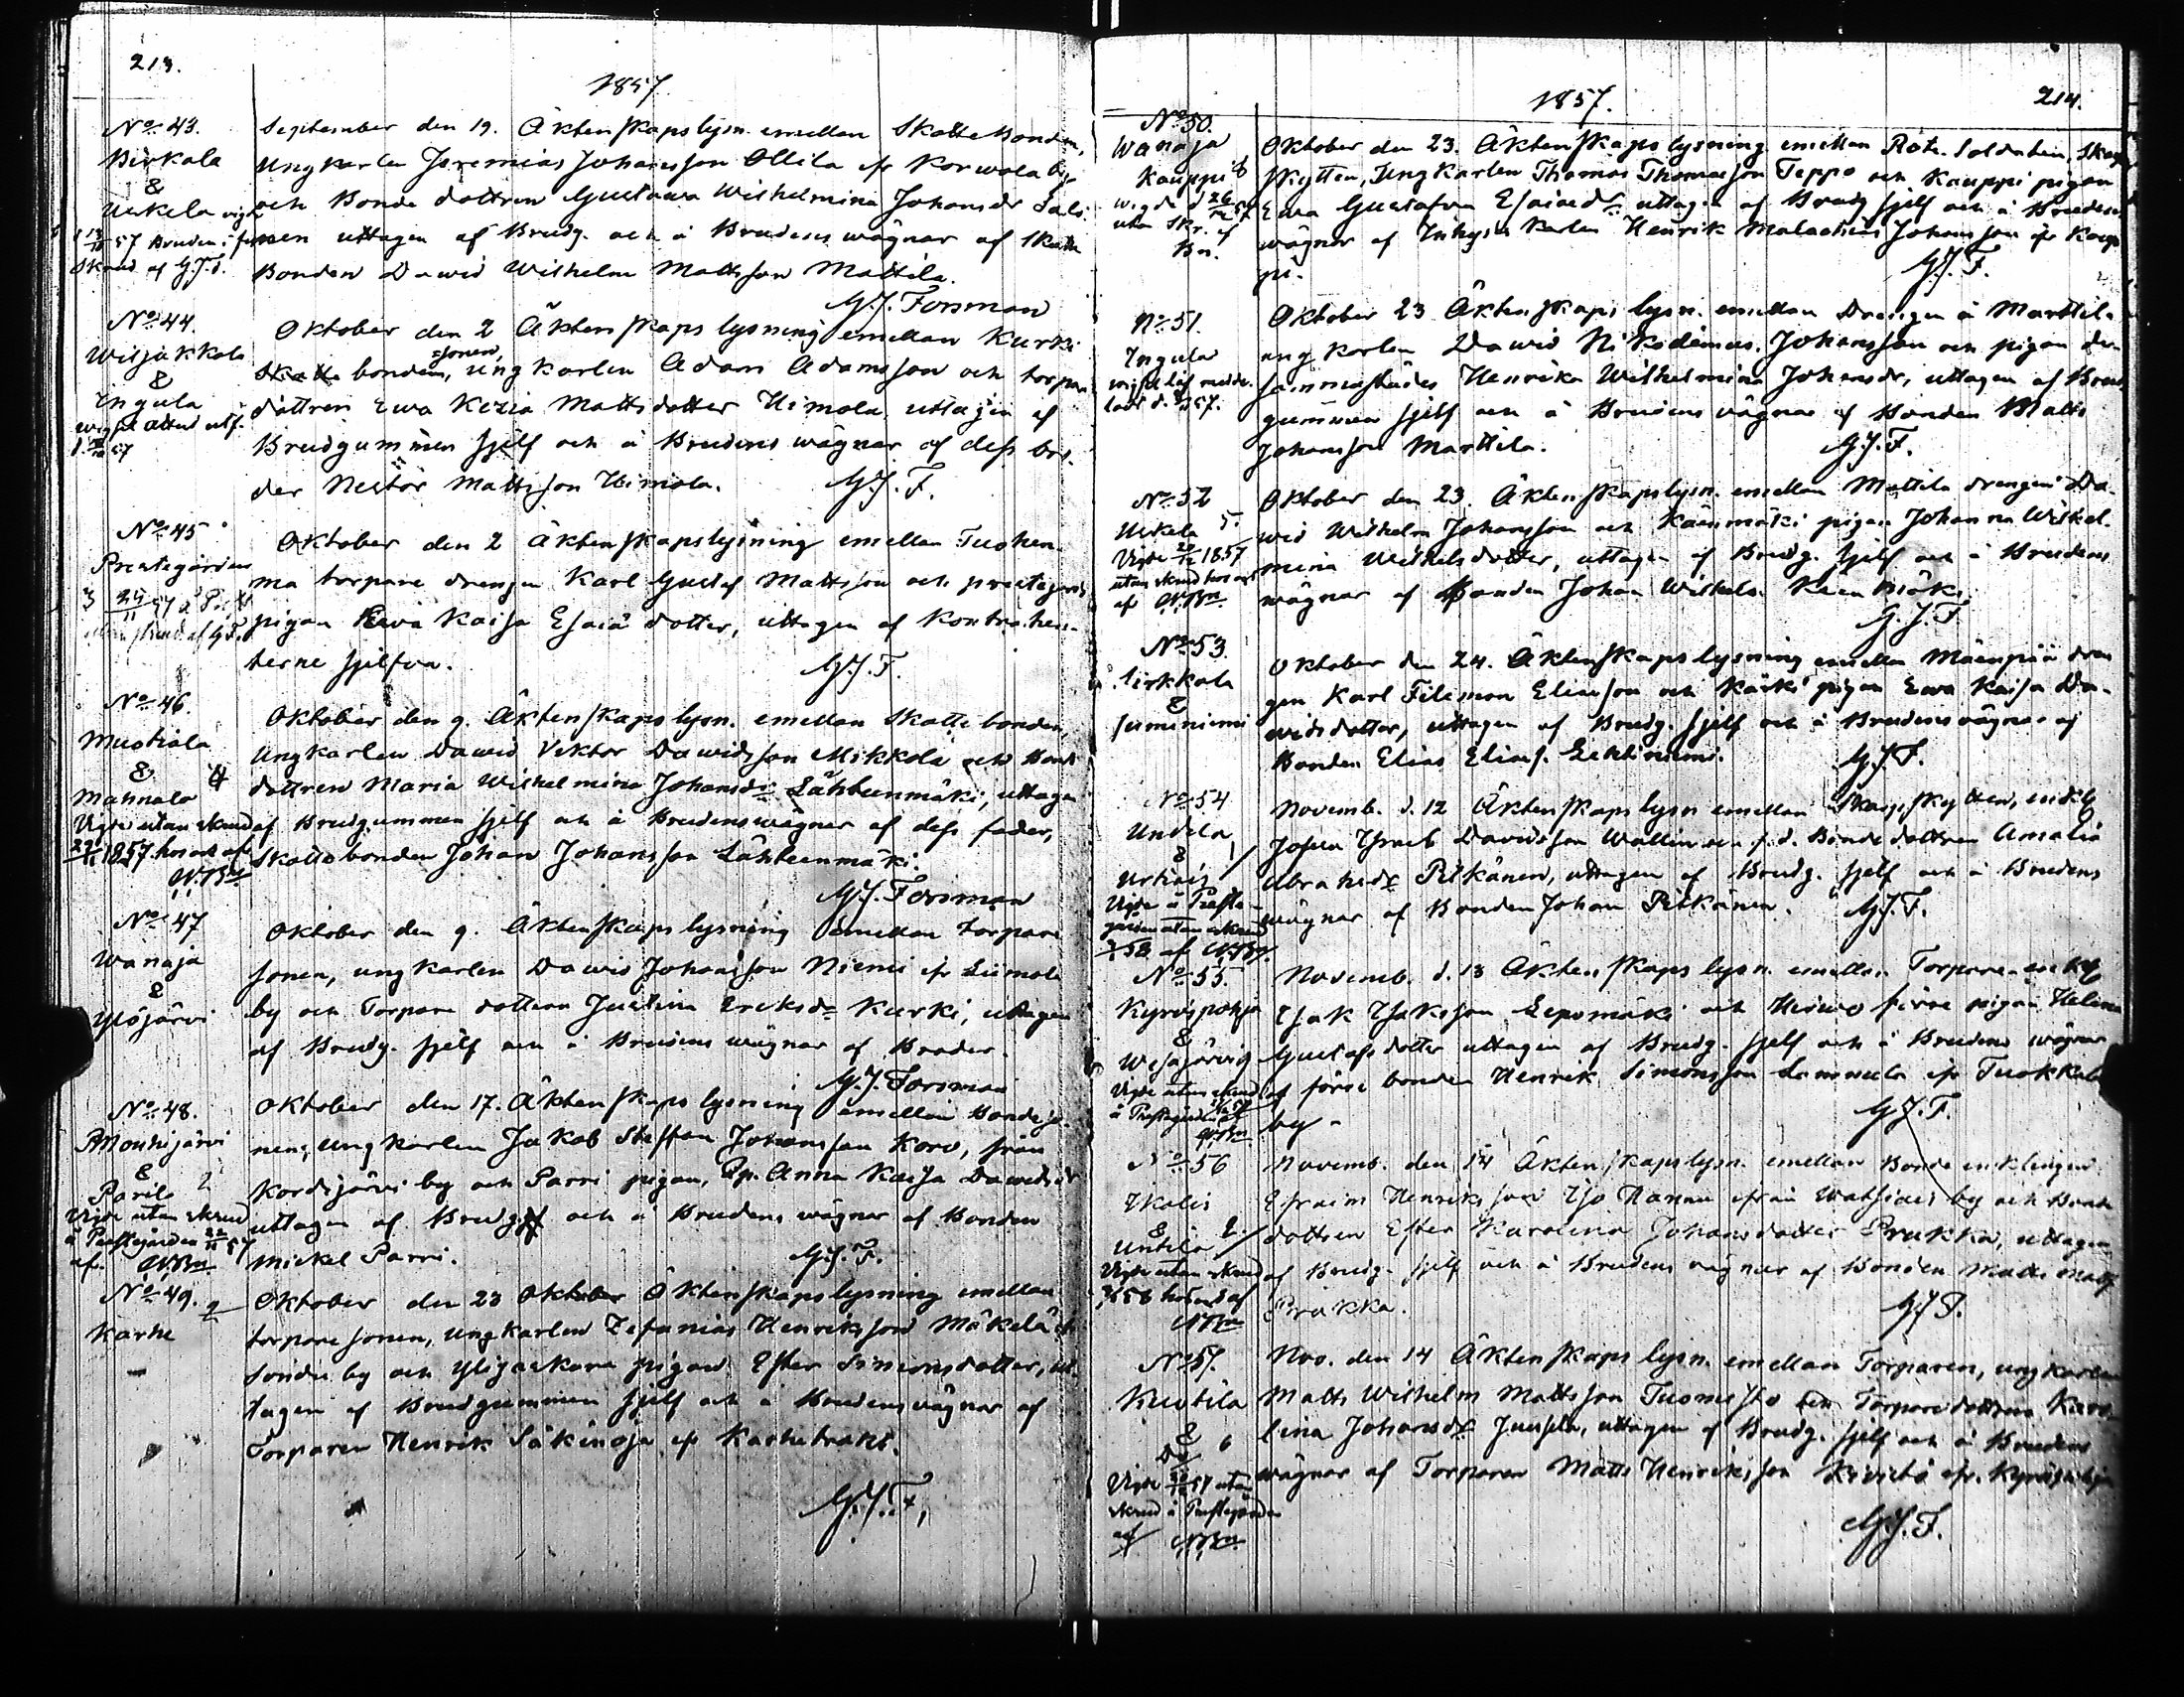 213.
1857.
No 43.
Birkala
&
Uskela
57 Bruden i
Skrud af G.J.F.
September den 19. Äktenskapslysn. emellan Skattebonden,
Ungkarlen Jeremias Johansson Ollila ifr Korwola by
och Bonde dottren Gustawa Wilhelmina Johansdr Salo
nen uttagen af Brudg. och å Brudens wägnar af Skatte
Bonden Dawid Wilhelm Mattsson Mattila.
G.J. Forsman
No 44.
Wiljakkala
&
Ingula
57
Oktober den 2 Äktenskaps lysning emellan Kurki
Skatte bonden, sonen, ungkarlen Adam Adamsson och torpare
dottren Ewa Kezia Mattsdotter Uimola, uttagen af
Brudgummen sjelf och å Brudens wägnar af dess bro-
der Nestor Mattsson Uimola. G.J.F.
No 45
Prestegården
3 24/11 57
utan skrud af G.F.
Oktober den 2 äktenskapslysning emellan Tuohen-
ma torpare drengen Karl Gustaf Mattsson och prestegårds
pigan Ewa Kaisa Esaiä dotter, uttagen af Kontrahen-
terne sjelfva. G.J.F.
No 46.
Mustiala
&
Mahnala 4
Vigde utan skrud
22/11 1857 hos oss af
Oktober den 9. Äktenskapslysn. emellan Skatte bonden,
Ungkarlen Dawid Vektor Dawidsson Mikkola och Bond
dottren Maria Wilhelmina Johansdr Lähteenmäki, uttagen
af Brudgummen sjelf och å Brudenswägnar af dess fader,
Skattebonden Johan Johansson Lähteenmäki
G.J. Forsman
No 47
Wanaja
&
Ylöjärvi
Oktober den 9. Äktenskaps lysning emellan torpare
sonen, ungkarlen Dawid Johansson Niemi ifr Liimola
by och Torpare dottren Justina Eriksdr Kurki, uttagen
af Brudg. sjelf och å Brudens wägnar af Broder.
G.J. Forsman
No 48.
Mouhijärvi
&
Parila 2
Vigde utan skrud
å Prestgården 22/11 57
af
Oktober den 17. Äktenskaps lysning emellan Bondeso-
nen, Ungkarlen Jakob Steffan Johansson Koro, från
Kordijärvi by och Parri pigan, Anna Kaisa Dawidsdr
uttagen af Brudg. och å Brudens wägnar af Bonden
Mickel Parri. G.J.F.
No 49. 2
Karhe
Oktober den 23 Oktober Äktenskapslysning emellan
torparesonen, Ungkarlen Zefanias Henriksson Mäkelä
by och pigan Ester Simonsdotter, ut-
tagen af Brudgummen sjelf och å Brudenswägnar af
Torparen Henrik Säkinoja ifr Karhetrakt.
G.J.F.
1857.
214.
No 50.
Wanaja
&
Kauppi
wigde d 26/12 57
utan Skr. af
Bn.
Oktober den 23. Äktenskaps lysning emellan Rote Soldaten, Skarp
skytten, Ungkarlen Thomas Thomasson Teppo och Kauppi pigan
Ewa Gustafva Esaiaedr uttagen af Brudg sjelf och å Brudens
wägnar af Inhyses Karlen Henrik Malachias Johansson ifr Kaup
pi. G.J.F.
No 51.
Ingula
57.
Oktober 23 Äktenskaps lysn. emellan Drengen å Marttila
ungkarlen Dawid Nikodemus Johansson och pigan der
sammastädes Henrika Wilhelmina Johansdr, uttagen af Brud
gummen sjelf och å Brudens vägnar af Bonden Matts
Johansson Marttila. G.J.F.
No 52
Uskela 5.
Vigde 1857
utan skrud hos oss
af
Oktober den 23. Äktenskapslysn. emellan Mattila drengen Da-
wid Wilhelm Johansson och Käenmäki pigan Johanna Wilhel-
mina Wilhelmsdotter, uttagen af Brudg. sjelf och å Brudens
wägnar af Bonden Johan Wilhelm Käenmäki.
G.J.F.
No 53.
Sirkkala
&
Juminiemi
Oktober den 24. Äktenskaps lysning emellan Mäenpää dren
gen Karl Filemon Eliasson och Kärki pigan Ewa Kaisa Da-
widsdotter, uttagen af Brudg. sjelf och å Brudens vägnar af
Bonden Elias Eliass. Lehtiniemi. G.J.F.
No 54
Undila
&
Vigde å Preste-
gården utan skrud
58 af
Novemb. d. 12 Äktenskaps lysn emellan Skarpskytten, enkl
Josua Davidsson Wallin och f.d. Bondedottren Amalia
Abrahsdr Pitkänen, uttagen af Brudg. sjelf och å Brudens
wägnar af Bonden Johan Pitkänen. G.J.F.
No 55.
Kyröspohja
&
Wesajärvi
Vigde utan skrud
å Prestegården
Novemb. d. 13 Äktenskaps lysn. emellan Torpare enkl
Isak Isaksson Lepomäki och pigan Helena
Gustafsdotter uttagen af Brudg. sjelf och å Brudens wägnar
af förre bonden Henrik Simonsson ifr Tuokkola
by. G.J.F.
No 56
Ikalis
&
Untila 2.
Vigde utan skrud
58 hos oss af
Novemb. den 14 Äktenskapslysn. emellan Bonde enklingen
Efraim Henriksson Iso Hannu ifrån by och Bonde
dottren Ester Karolina Johansdotter Prukka, uttagen
af Brudg. sjelf och å Brudens vägnar af Bonden Matts Matts
Prukka. G.J.F.
No 57.
Kuotila
&
Do 6
Vigde 57 utan
skrud å Prestegården
af
Nov. den 14 Äktenskaps lysn. emellan Torparen, ungkarlen
Matts Wilhelm Mattsson och Torparedottren Karo-
lina Johansdr Jussila, uttagen af Brudg. sjelf och å Brudens
wägnar af Torparen Matts Henriksson ifr. Kyröspohja
G.J.F.